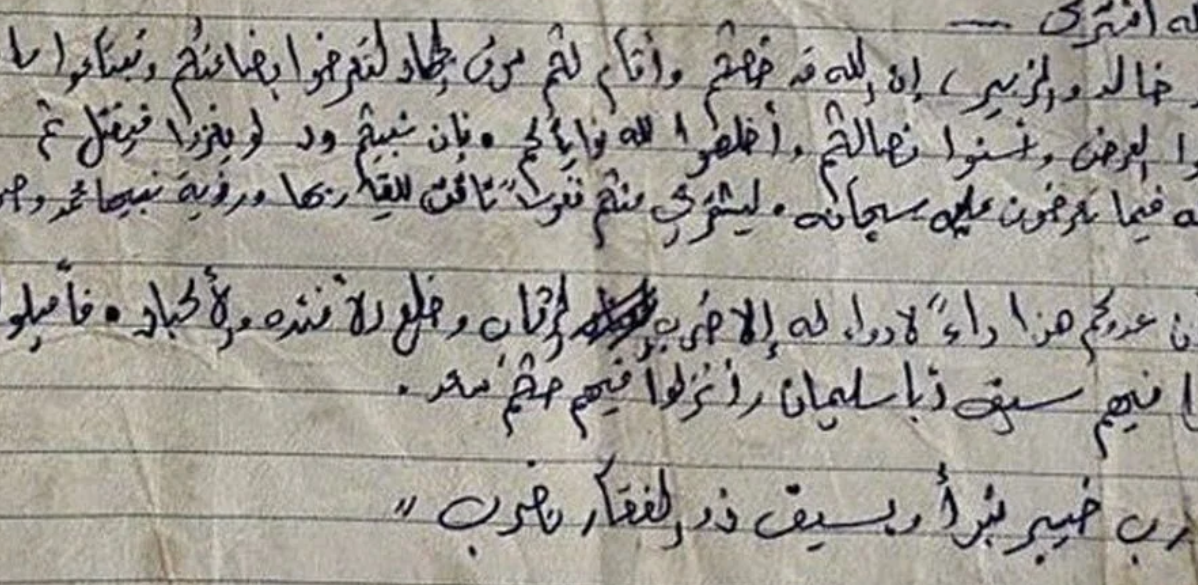 افترى —
خالد والزبير، إن الله قد خصكم وأقام لكم سوق جهاد لتعرضوا بضاعتكم وتبتاعوا
العرض وتسنوا نصالكم وأخلصوا لله نواياكم. فإن نبيكم ود لو يغزو فيقتل ثم
فيما تعرضون عليه سبحانه. ليشتري منكم نفوساً تاقت للقاء ربها ورؤية نبيها محمد
عدوكم هذا داءً لا دواء له إلا ضرب الرقاب وخلع الأفئدة والأكباد.
فيهم سيف أبا سليمان وانزلوا فيهم حكم سعد.
خيبر نبرأ وبسيف ذو الفقار نضرب "